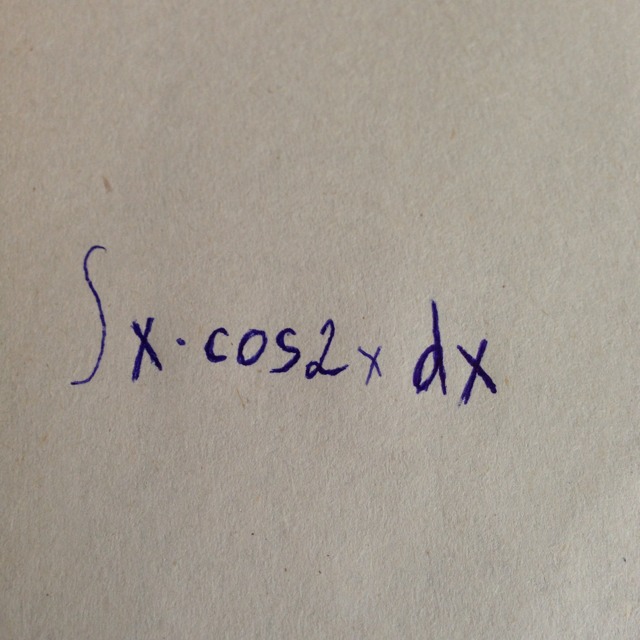 ∫ x · cos2x dx